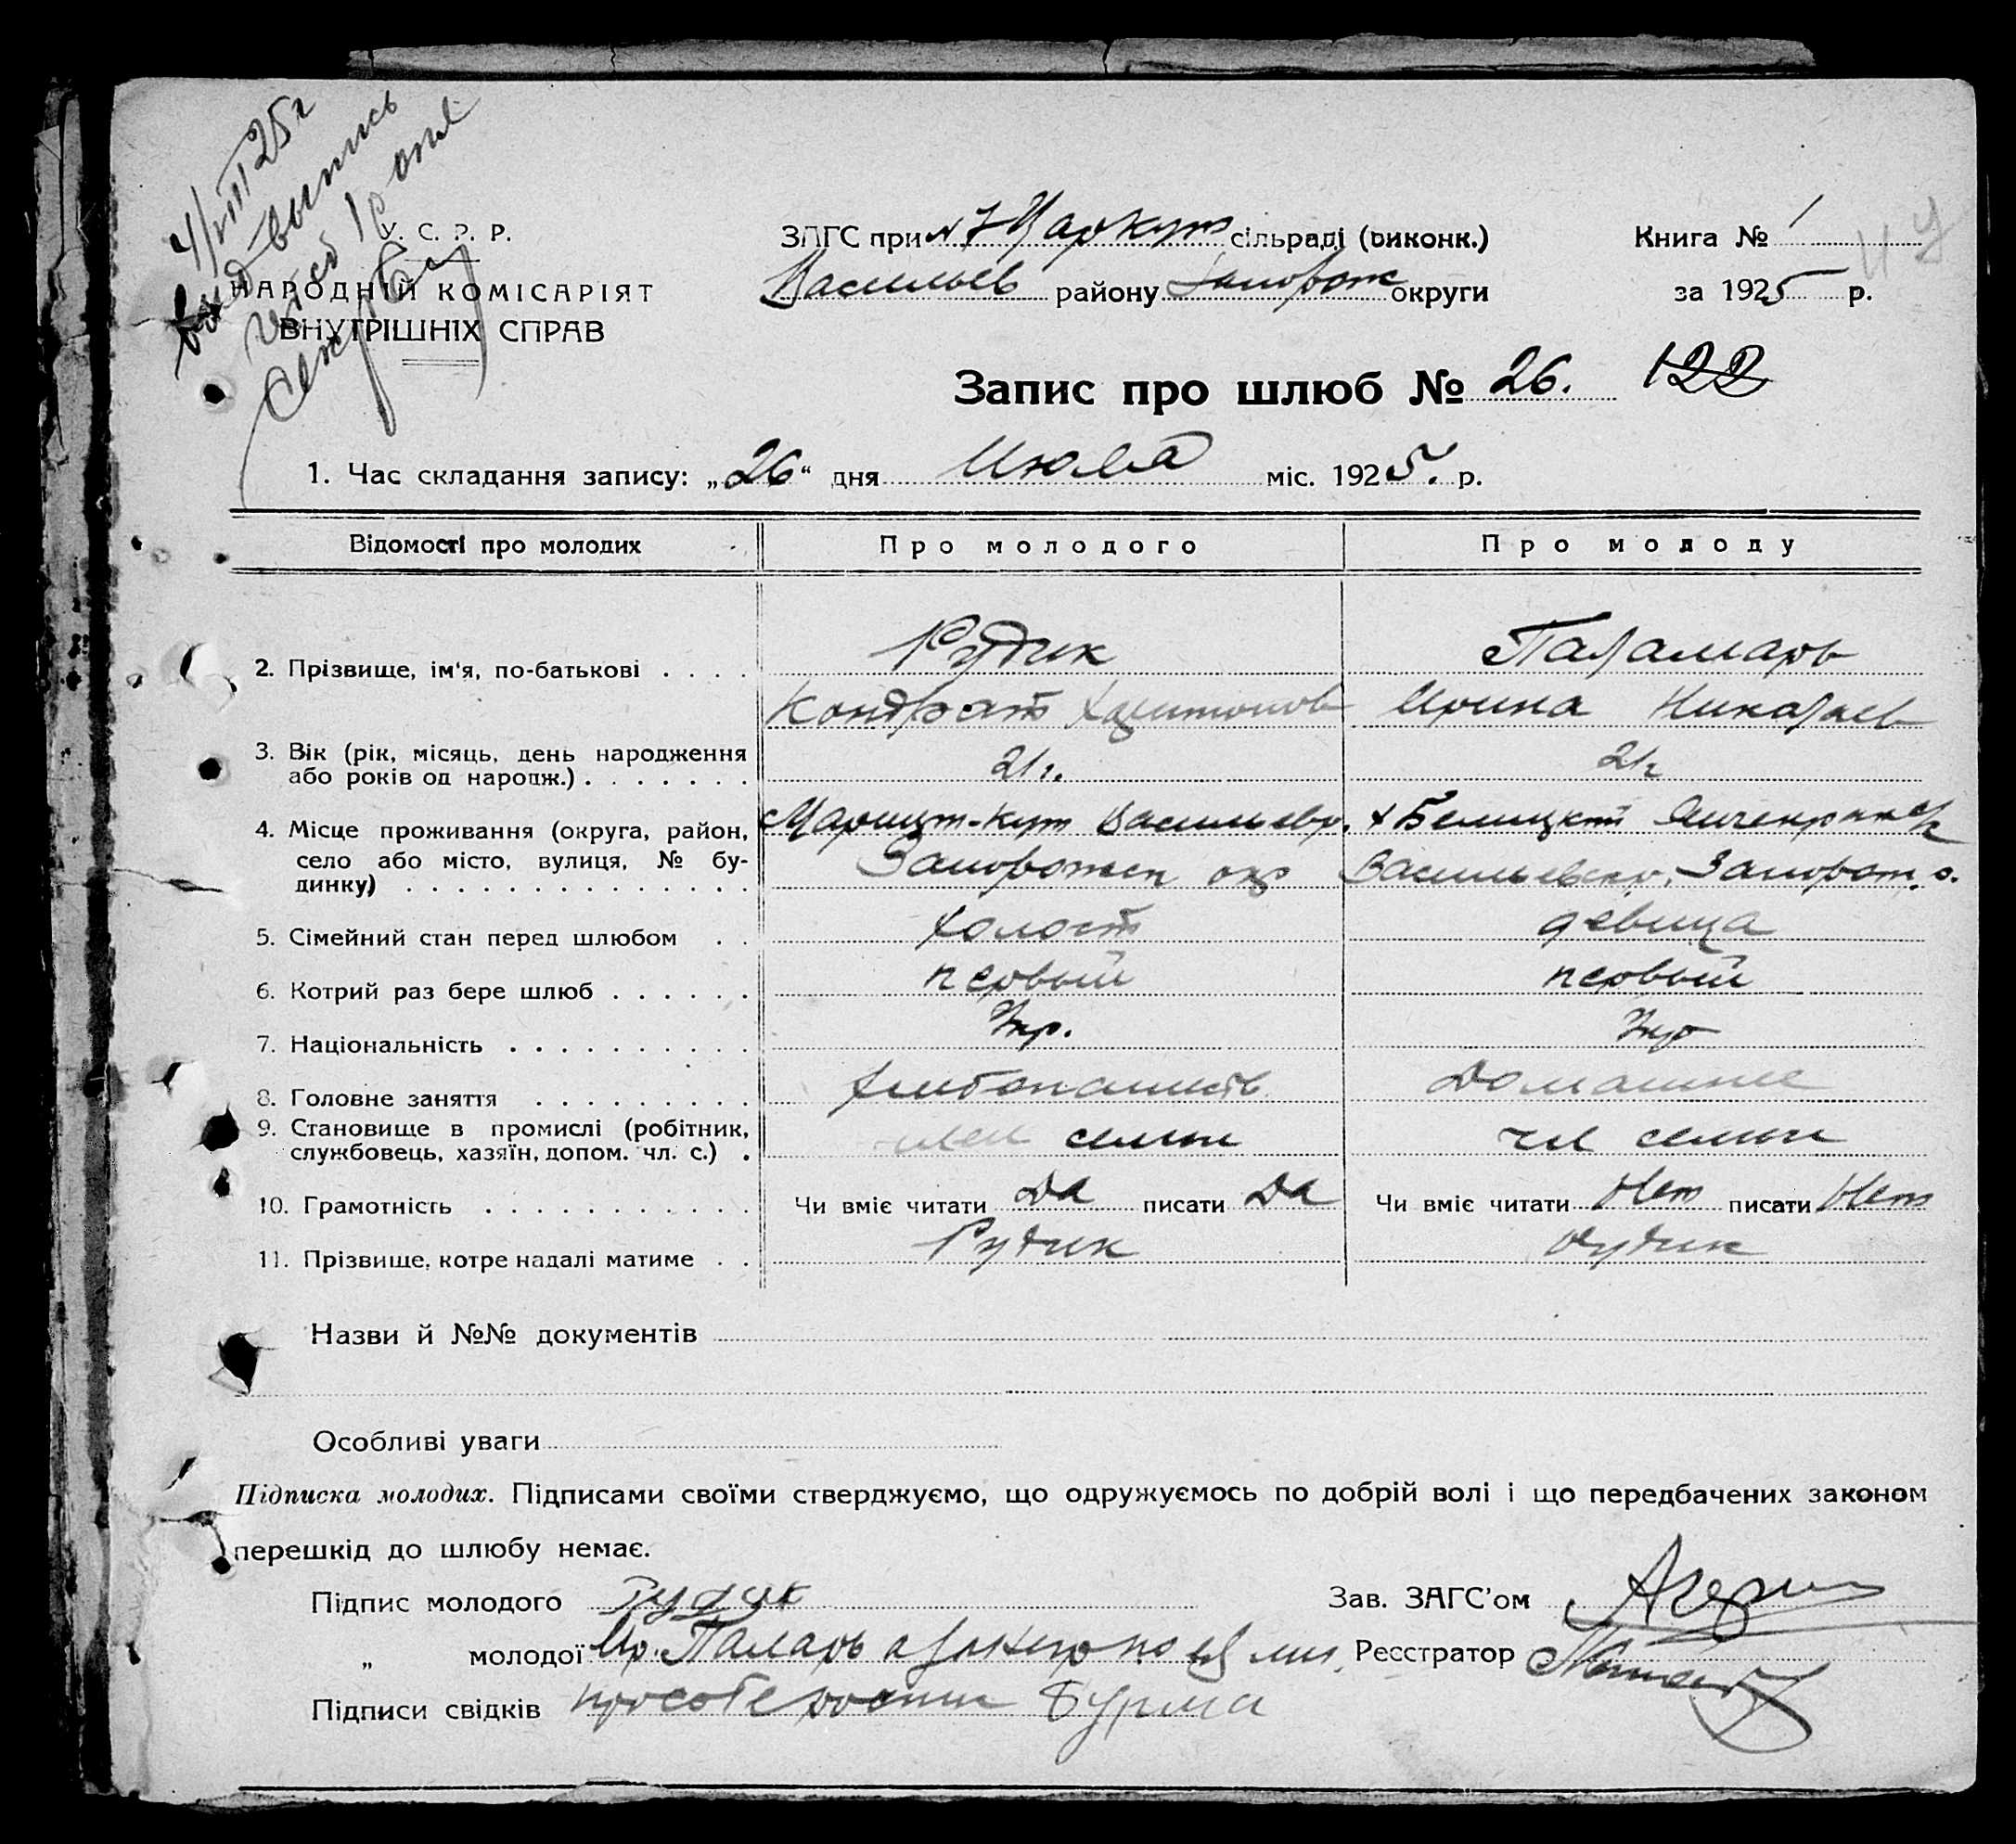 4/VIII 25 г
выпись
У. С. Р. Р.
НАРОДНІЙ КОМІСАРІЯТ
ВНУТРІШНІХ СПРАВ
ЗАГС при Царкут сільраді (виконк.)
Васильев району Запорож округи
Книга № 1
за 1925 р.
Запис про шлюб № 26. 122
1. Час складання запису: „26“ дня Июля міс. 1925. р.
Відомості про молодих Про молодого Про молоду
Рудик Паламарь
2. Прізвище, ім'я, по-батькові . . . .
Кондрат Харитонов Ирина Николаев
3. Вік (рік, місяць, день народження
або років од народж.) . . . . . . . 21 г. 21 г
4. Місце проживання (округа, район, Царицт-Кут Васильевр. х Белицкий
село або місто, вулиця, № бу- Запорожск окр Васильевск р. Запорож. о.
динку) . . . . . . . . . . . . . .
5. Сімейний стан перед шлюбом . . холост девица
6. Котрий раз бере шлюб . . . . . . первый первый
7. Національність . . . . . . . . . . Укр. Укр
8. Головне заняття . . . . . . . . . Хлебопашеств Домашнее
9. Становище в промислі (робітник,
службовець, хазяїн, допом. чл. с.) . член семьи чл семьи
10. Грамотність . . . . . . . . . . . Чи вміє читати Да писати Да Чи вміє читати Нет писати Нет
11. Прізвище, котре надалі матиме . . Рудик Рудик
Назви й №№ документів
Особливі уваги
Підписка молодих. Підписами своїми стверджуємо, що одружуємось по добрій волі і що передбачених законом
перешкід до шлюбу немає.
Підпис молодого Рудик Зав. ЗАГС'ом
„ молодої Ир. Паларь Реєстратор
Підписи свідків Бурма